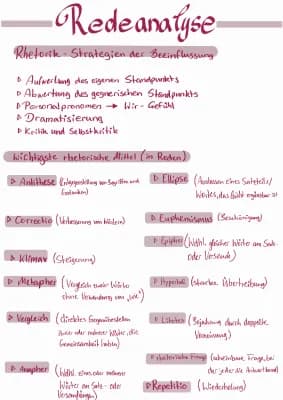 Redeanalyse
Rhetorik - Strategien der Beeinflussung
▷ Aufwertung des eigenen Standpunkts
▷ Abwertung des gegnerischen Standpunkts
▷ Personalpronomen → Wir - Gefühl
▷ Dramatisierung
▷ Kritik und Selbstkritik
Wichtigste rhetorische Mittel (in Reden)
▷ Antithese (Entgegenstellung von Begriffen und
Gedanken)
▷ Correctio (Verbesserung von Wörtern)
▷ Klimax (Steigerung)
▷ Metapher (Vergleich zweier Wörter
ohne Verwendung von „wie")
▷ Vergleich (direktes Gegenüberstellen
zweier oder mehrerer Wörter, die
Gemeinsamkeit haben)
▷ Anapher (Wdhl. eines oder mehrerer
Wörter am Satz- oder
Versanfang)
▷ Ellipse (Auslassen eines Satzteils/
Wortes, das leicht ergänzbar ist
▷ Euphemismus (Beschönigung)
▷ Epipher (Wdhl. gleicher Wörter am Satz-
oder Versende)
▷ Hyperbel (starke Übertreibung)
▷ Litotes (Bejahung durch doppelte
Verneinung)
▷ rhetorische Frage (scheinbare Frage, bei
der jeder die Antwort kennt)
▷ Repetitio (Wiederholung)